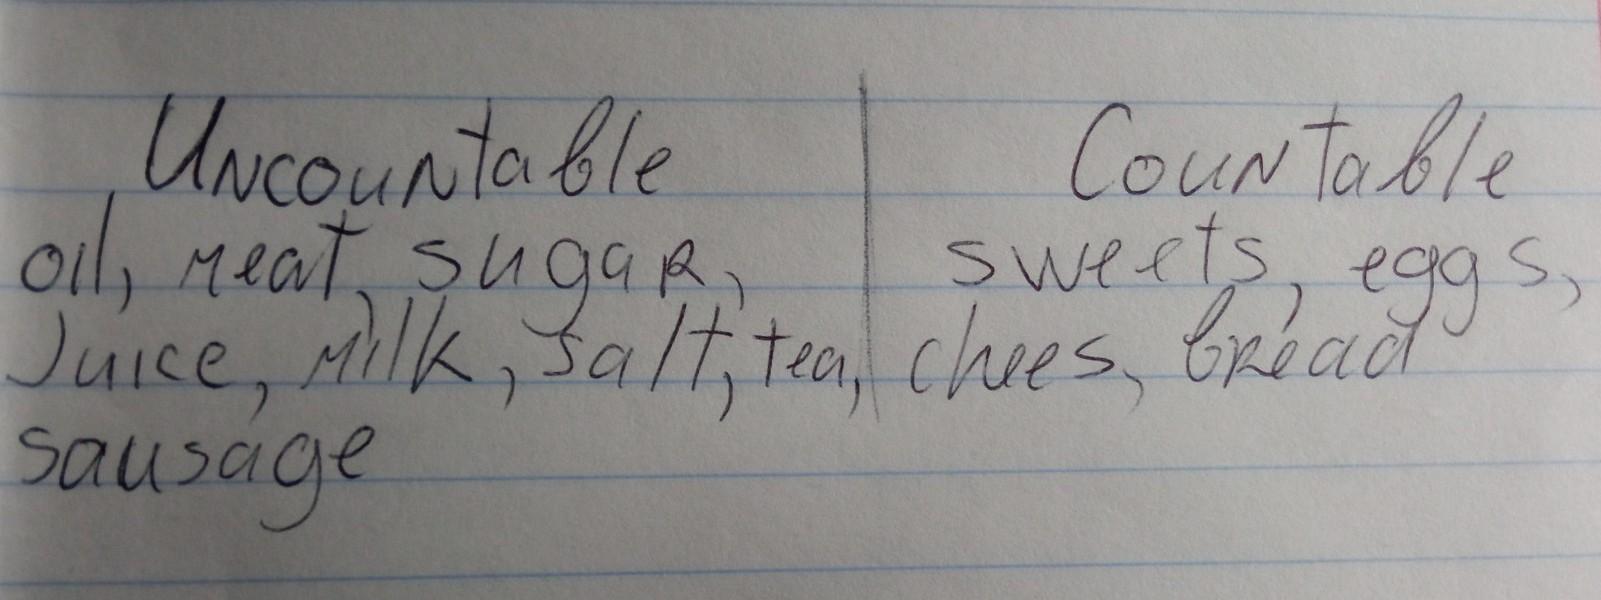 Uncountable | Countable
oil, meat, sugar, | sweets, eggs,
Juice, milk, salt, tea, | chees, bread
sausage